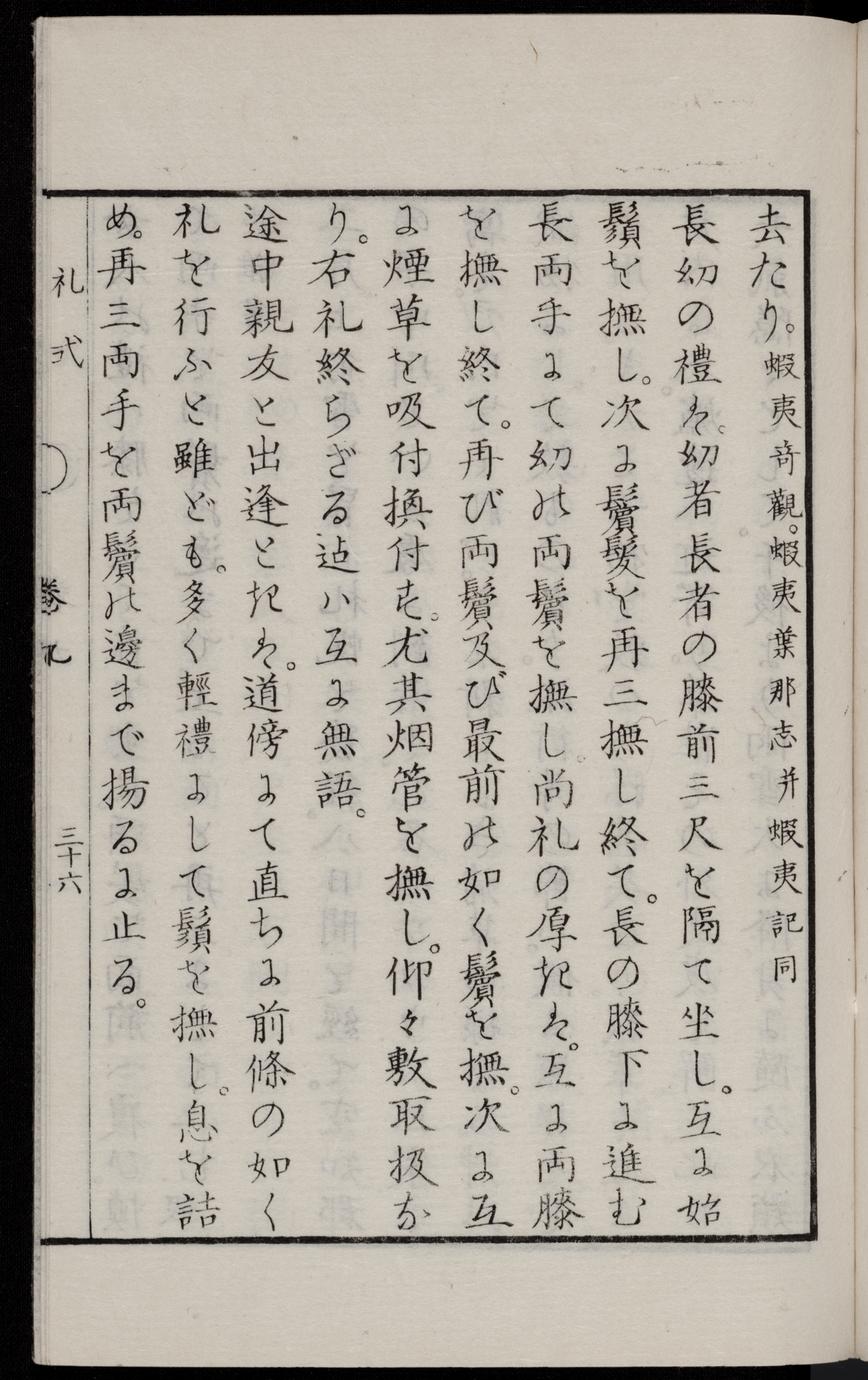 去たり。蝦夷奇觀。蝦夷葉那志并蝦夷記同
長幼の禮は。幼者長者の膝前三尺を隔て坐し。互に始
鬚を撫し。次に鬢髪を再三撫し終て。長の膝下に進む
長両手にて幼の両鬢を撫し。尚礼の厚きは。互に両膝
を撫し終て。再び両鬢及び最前の如く鬢を撫。次に互
に煙草を吸付換付す。尤其烟管を撫し。仰々敷取扱な
り。右礼終らざる迠ハ互に無語。
途中親友と出逢ときは。道傍にて直ちに前條の如く
礼を行ふと雖ども。多く輕禮にして鬚を撫し。息を詰
め。再三両手を両鬢の邊まで揚るに止る。
礼式
卷九
三十六